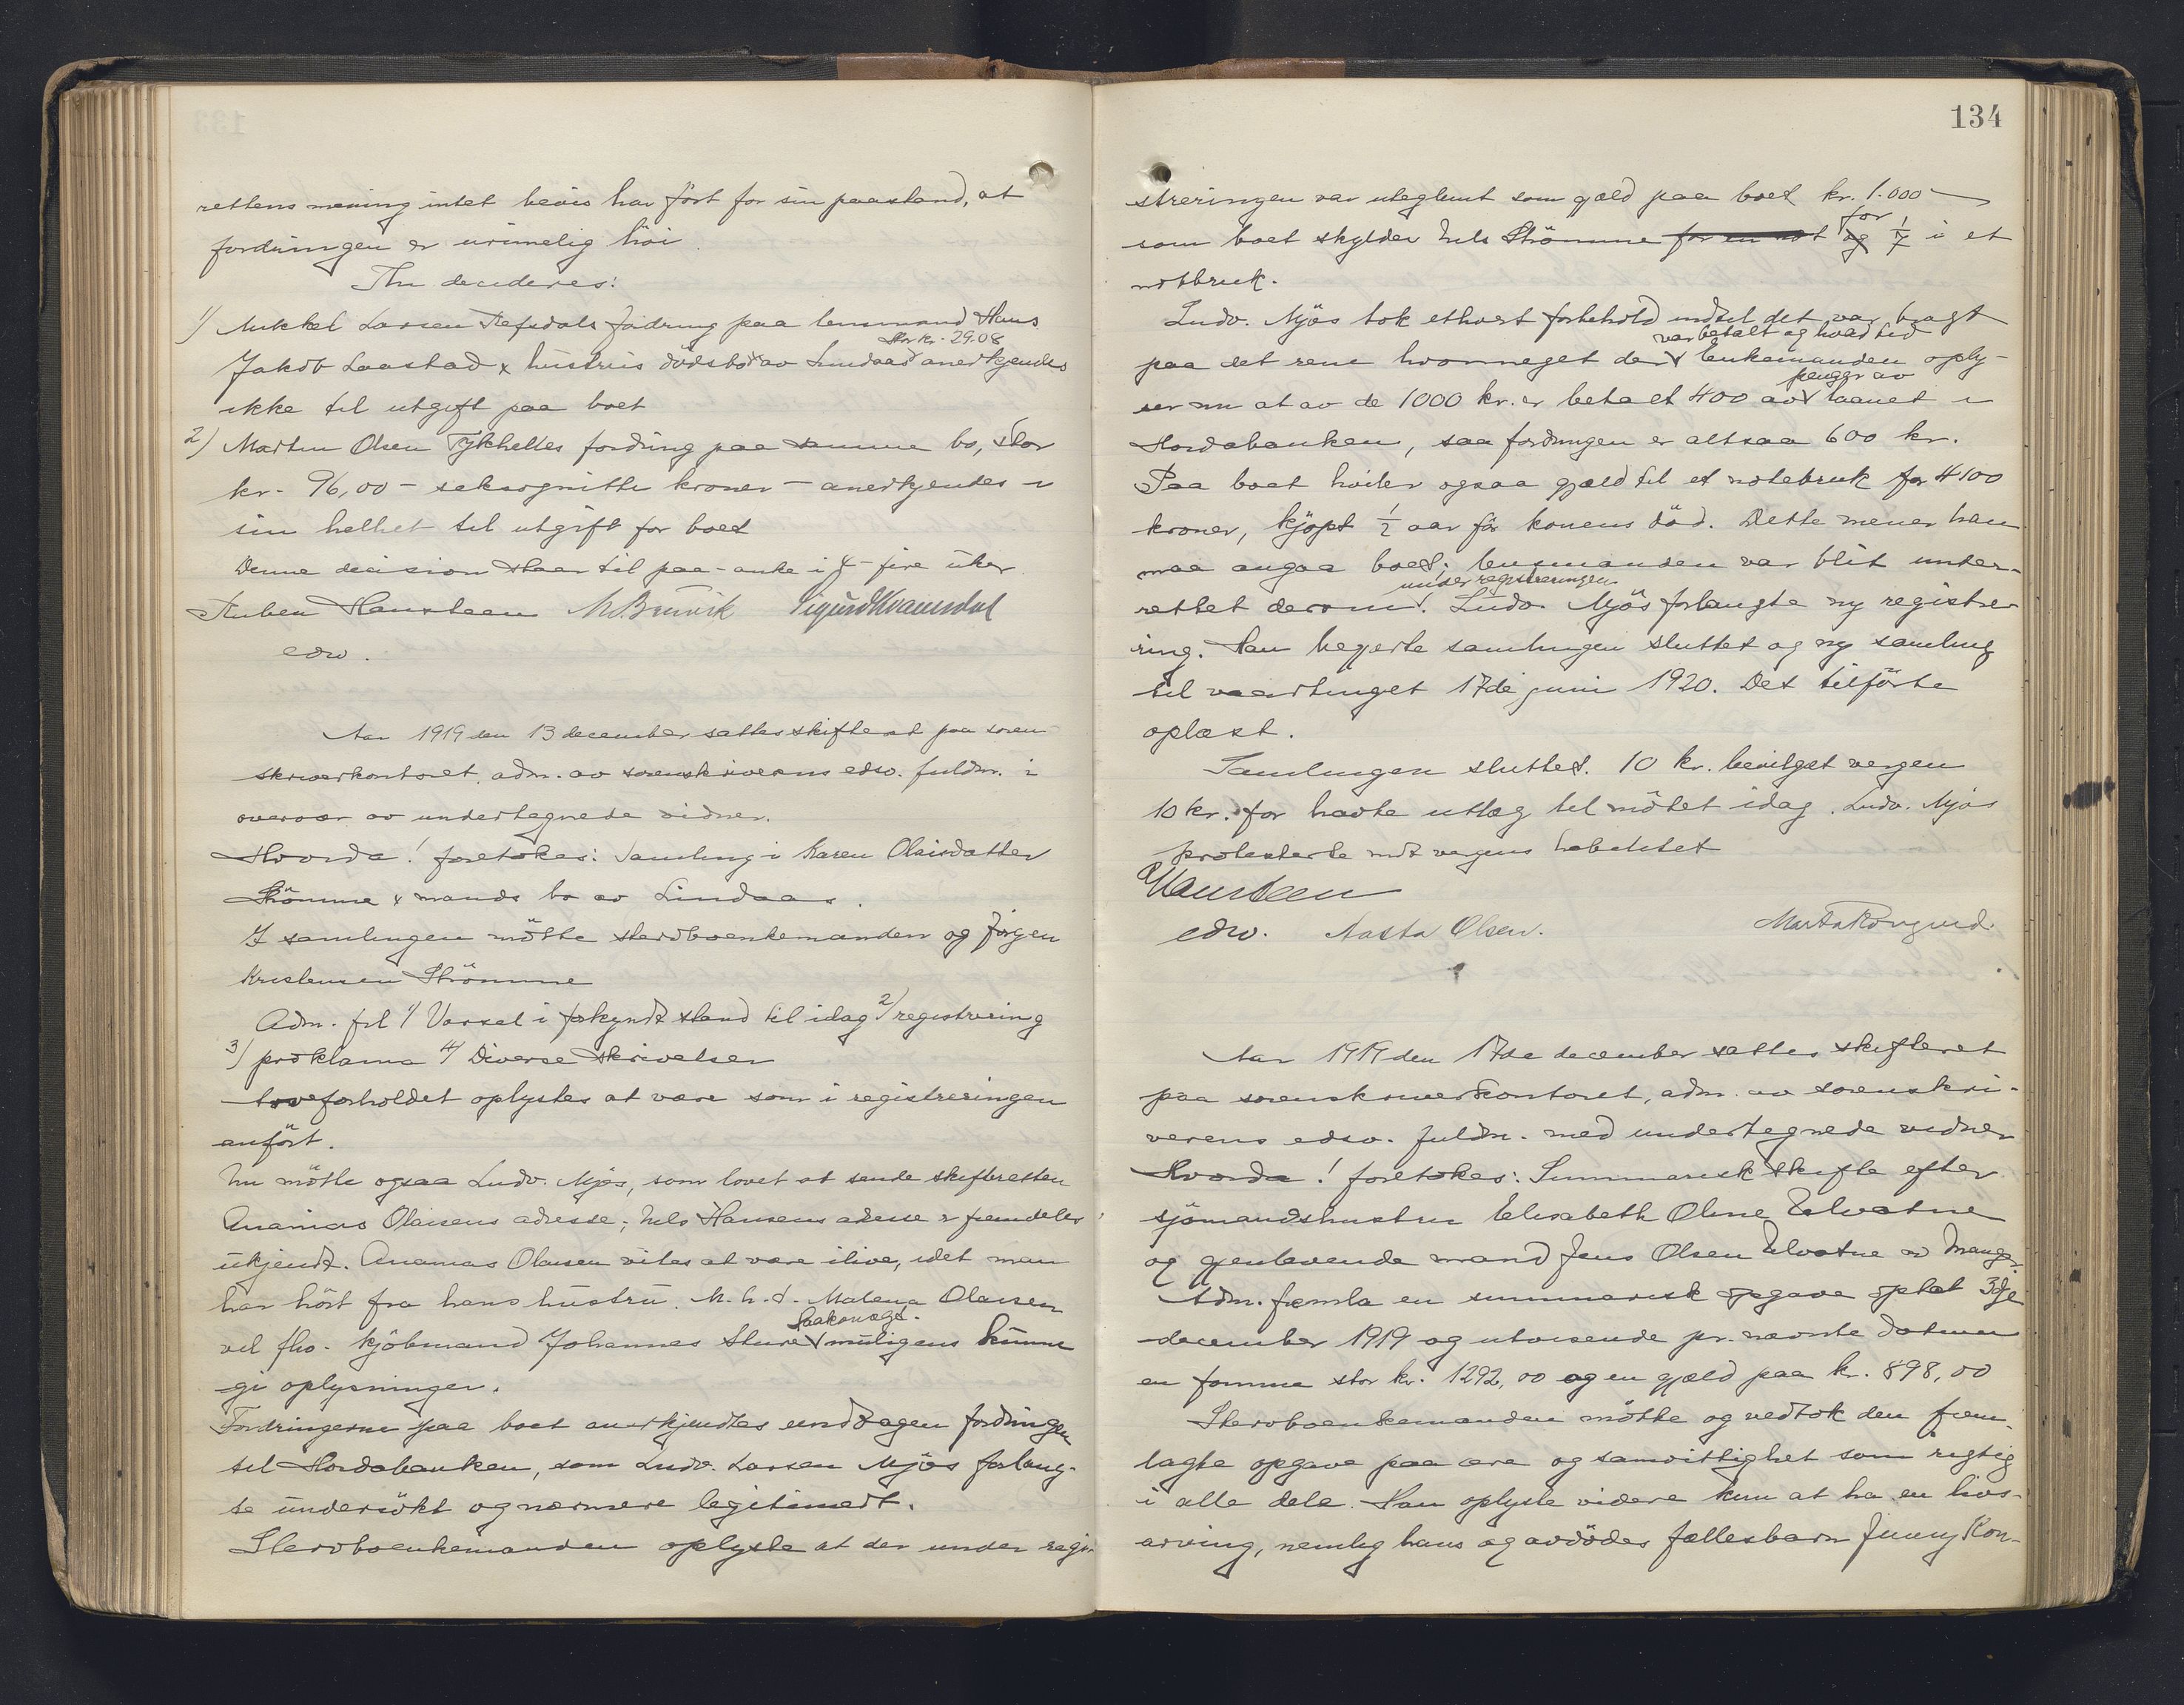 rettens mening intet bevis har ført for sin paastand, at
fordringen er urimelig høi.
Thi decideres:
1/ Mikkel Larsen Refsdals fordring paa lensmand Hans
stor kr. 29.08
Jakob Laastad & hustrus dødsbo av Lindaas anerkjendes
ikke til utgift paa boet
2/ Martin Olsen Tykheltes fordring paa samme bo, stor
kr. 96,00 - seksognitti kroner - anerkjendes i
sin helhet til utgift for boet
Denne decision staar til paa-anke i 4 - fire uker.
Ruben Hansteen M. Brunvik Sigurd Kvamsdal
edsv.
Aar 1919 den 13 december sattes skifteret paa soren-
skriverkontoret, adm. av sorenskriverens edsv. fuldm. i
overvær av undertegnede vidner.
Hvorda! foretokes: Samling i Karen Olaisdatter
Strømme & mands bo av Lindaas.
I samlingen møtte stervboenkemanden og Jørgen
Kristensen Strømme
Adm. frl 1/ Varsel i forkyndt stand til idag 2/ registrering
3/ proklama 4/ Diverse skrivelser
Arveforholdet oplystes at være som i registreringen
anført.
Nu møtte ogsaa Ludv. Mjøs, som lovet at sende skifteretten
Ananias Olaisens adresse; Nels Hansens adresse er fremdeles
ukjendt. Ananias Olaisen vites at være ilive, idet man
har hørt fra hans hustru. M. h. t. Malena Olaisen
vil fho. kjøbmand Johannes Sture muligens kunne
gi oplysninger.
Fordringerne paa boet anerkjendtes undtagen fordringen
til Hordabanken, som Ludv. Larsen Mjøs forlang-
te undersøkt og nærmere legitimert.
Stervboenkemanden oplyste at der under regi-
134
streringen var uteglemt som gjæld paa boet kr. 1.000 -
for
som boet skylder Nels Strømme for en not og 1/7 i et
notbruk.
Ludv. Mjøs tok ethvert forbehold indtil det var bragt
var betalt og hvad tid
paa det rene hvormeget der Enkemanden oply-
penger av
ser nu at av de 1000 kr. er betalt 400 av laanet i
Hordabanken, saa fordringen er altsaa 600 kr.
Paa boet hviler ogsaa gjæld til et notebruk for 4100
kroner, kjøpt 1/2 aar før konens død. Dette mener han
maa angaa boet; lensmanden var blit under-
under registreringen
rettet derom. Ludv. Mjøs forlangte ny registre-
ring. Han begjerte samlingen sluttet og ny samling
til vaartinget 17de juni 1920. Det tilførte
oplæst.
Samlingen sluttet. 10 kr. bevilget vergen
10 kr. for havte utlæg til møtet idag. Ludv. Mjøs
protesterte mot vergens habilitet
Hansteen
edsv. Aasta Olsen.
Aar 1919 den 17de december sattes skifteret
paa sorenskriverkontoret, adm. av sorenskri-
verens edsv. fuldm. med undertegnede vidner
Hvorda! foretokes: Summarisk skifte efter
sjømandshustru Elisabeth Oline Elvatne
og gjenlevende mand Jens Olsen Elvatne av Manger.
Adm. fremla en summarisk opgave optat 3dje
december 1919 og utvisende pr. nævnte datum
en formue stor kr. 1292,00 og en gjæld paa kr. 898,00
Stervboenkemanden møtte og vedtok den frem-
lagte opgave paa ære og samvittighet som rigtig
i alle dele. Han oplyste videre kun at ha en livs-
arving, nemlig hans og avdødes fællesbarn Jenny Kon-